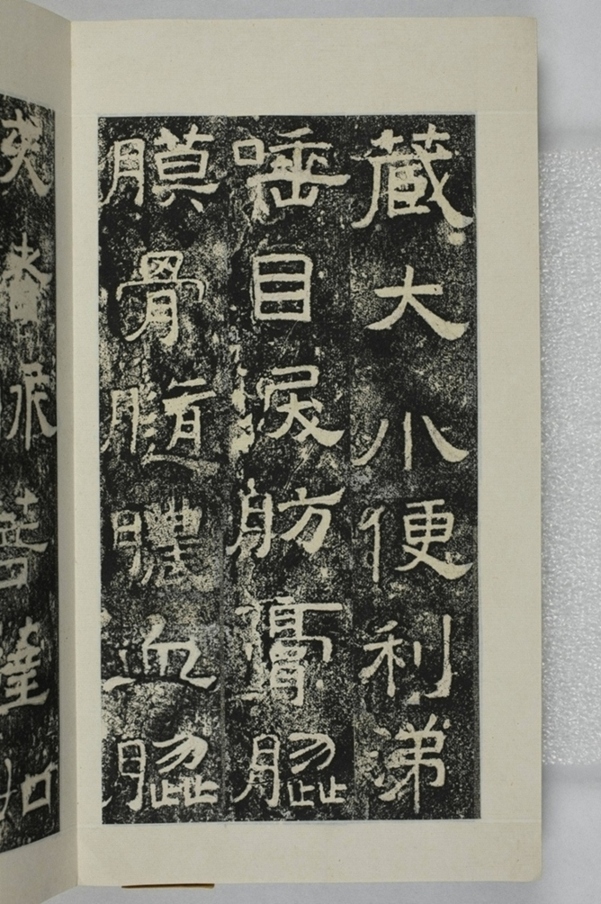 蔵大小便利涕
唾目淚肪膏腦
膜骨髓膿血腦